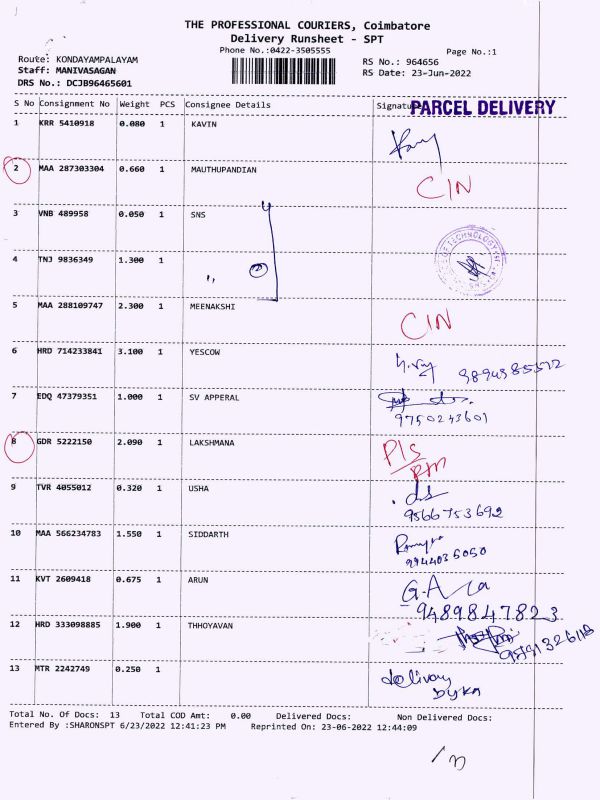 THE PROFESSIONAL COURIERS, Coimbatore
Delivery Runsheet - SPT
Phone No.:0422-3505555
Page No.:1
Route: KONDAYAMPALAYAM
Staff: MANIVASAGAN
DRS No.: DCJB96465601
RS No.: 964656
RS Date: 23-Jun-2022
S No Consignment No Weight PCS Consignee Details Signature
PARCEL DELIVERY
1 KRR 5410918 0.080 1 KAVIN
2 MAA 287303304 0.660 1 MAUTHUPANDIAN CIN
3 VNB 489958 0.050 1 SNS
4 TNJ 9836349 1.300 1
OF TECHNOLOGY
5 MAA 288109747 2.300 1 MEENAKSHI CIN
6 HRD 714233841 3.100 1 YESCOW
7 EDQ 47379351 1.000 1 SV APPERAL
9750243601
8 GDR 5222150 2.090 1 LAKSHMANA P/s
RM
9 TVR 4055012 0.320 1 USHA
9566753692
10 MAA 566234783 1.550 1 SIDDARTH
9944035050
11 KVT 2609418 0.675 1 ARUN G.A
9489847823
12 HRD 333098885 1.900 1 THHOYAVAN
13 MTR 2242749 0.250 1 delivery
Total No. Of Docs: 13 Total COD Amt: 0.00 Delivered Docs: Non Delivered Docs:
Entered By :SHARONSPT 6/23/2022 12:41:23 PM Reprinted On: 23-06-2022 12:44:09